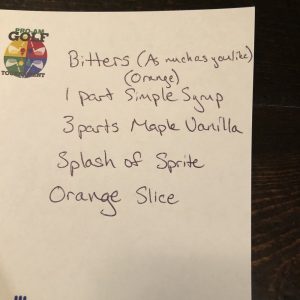 PRO-AM
GOLF
TOURNAMENT
Bitters (As much as you like)
(Orange)
1 part Simple Syrup
3 parts Maple Vanilla
Splash of Sprite
Orange Slice